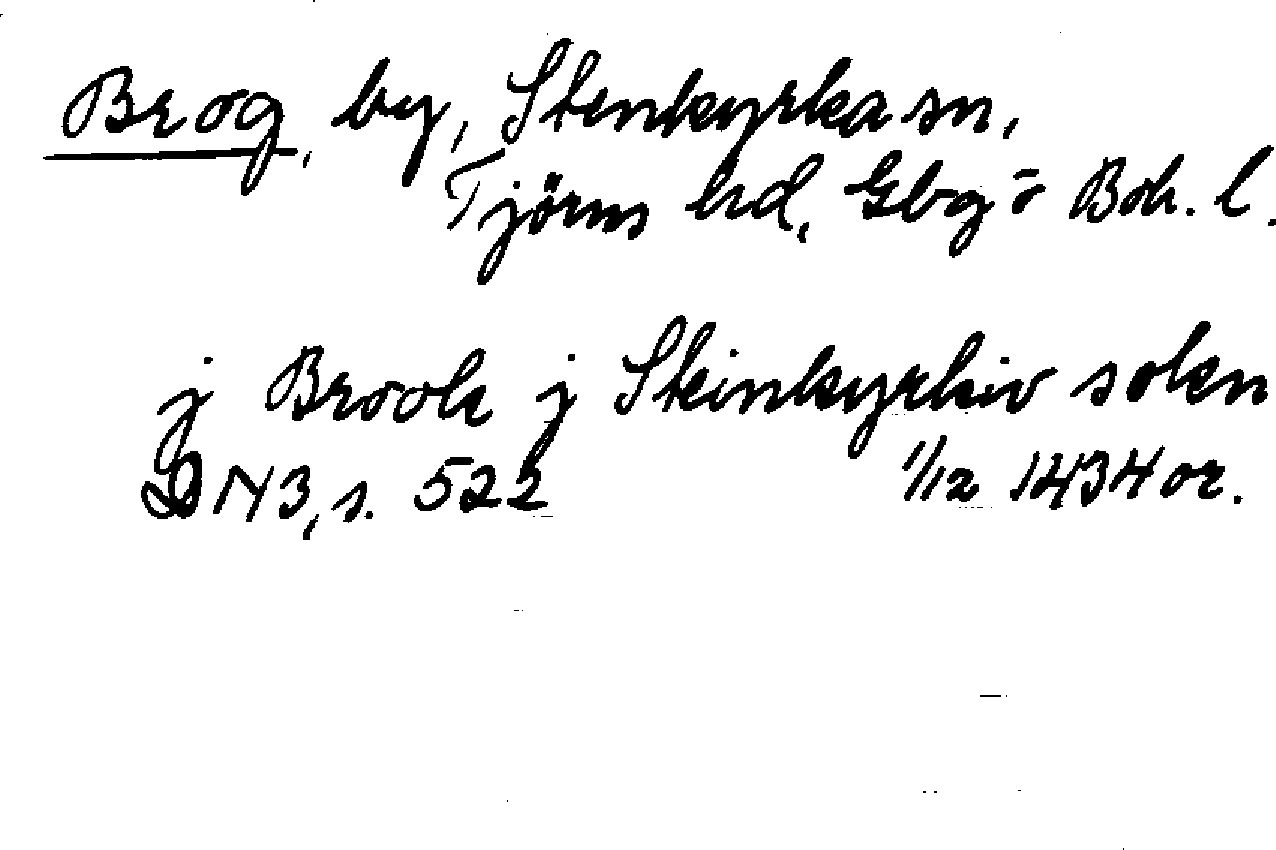 Brog, by, Stenkyrka sn,
Tjörns hd, Gbg o Boh. l.
j Brook j Steinkyrkiv sokn
DN 3, s. 522 1/12 1434 or.